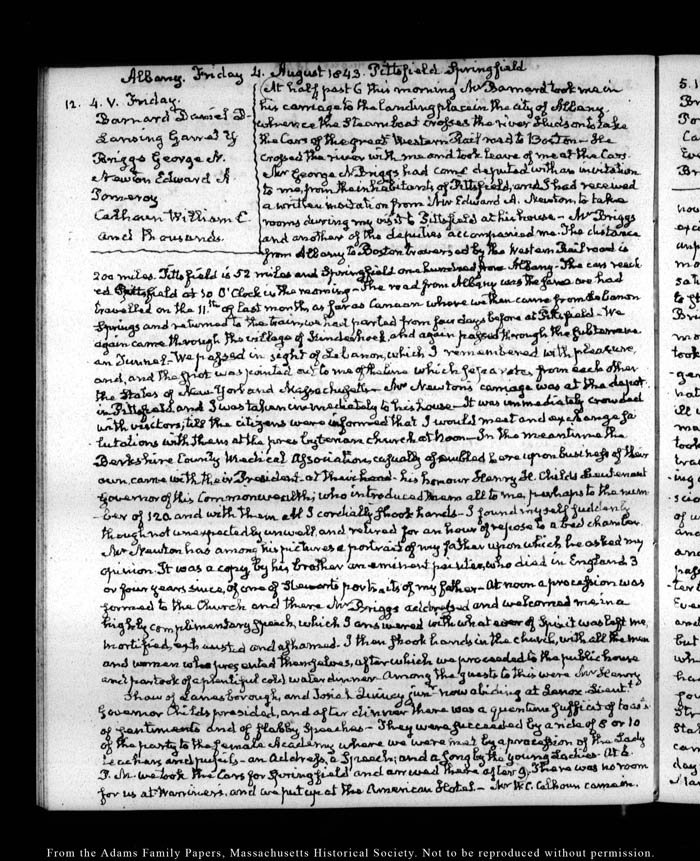 Albany. Friday 4. August 1843. Pittsfield Springfield
12. 4. V. Friday.
Barnard Daniel D.
Lansing Garret Y
Briggs George N.
Newton Edward A.
Pomeroy
Calhoun William C.
and thousands.
At half past 6 this morning Mr Barnard took me in
his carriage to the landing place in the city of Albany
whence the Steam boat crosses the river Hudson to take
the Cars of the great Western Rail road to Boston – He
crossed the river with me and took leave of me at the Cars.
Mr George N. Briggs had come deputed with an invitation
to me, from the inhabitants of Pittsfield, and I had received
a written invitation from Mr Edward A. Newton, to take
rooms during my visit to Pittsfield at his house – Mr Briggs
and another of the deputies accompanied me. The distance
from Albany to Boston traversed by the Western Rail road is
200 miles. Pittsfield is 52 miles and Springfield one hundred from Albany – The cars reach
ed Pittsfield at 10 O'Clock in the morning – The road from Albany was the same we had
travelled on the 11th of last month, as far as Canaan where we then came from the Lebanon
Springs and returned to the train, we had parted from four days before at Pittsfield – We
again came through the village of Kinderhook, and again passed through the subterrane
an Tunnel – We passed in sight of Lebanon, which I remembered with pleasure,
and, and the spot was pointed out to me of the line which separates from each other
the States of New York and Massachusetts – Mr Newton's carriage was at the depot
in Pittsfield, and I was taken immediately to his house – It was immediately crowded
with visitors, till the citizens were informed that I would meet and exchange sa
lutations with them at the presbyterian church at Noon – In the meantime the
Berkshire County Medical Association, casually assembled here upon business of their
own, came with their President at their head – his honour Henry H. Childs Lieutenant
Governor of this Commonwealth; who introduced them all to me, perhaps to the num
ber of 120, and with them all I cordially shook hands – I found myself suddenly
though not unexpectedly unwell, and retired for an hour of repose to a bed chamber.
Mr Newton has among his pictures a portrait of my father upon which he asked my
opinion. It was a copy by his brother an eminent painter, who died in England 3
or four years since, of one of Stewart's portraits of my father – At noon a procession was
formed to the Church and there Mr Briggs addressed and welcomed me in a
highly complimentary speech, which I answered with what ever of Spirit was left me,
mortified, exhausted and ashamed. I then shook hands in the church, with all the men
and women who presented themselves, after which we proceeded to the public house
and partook of a plentiful cold water dinner. Among the guests to this were Mr Henry
Shaw of Lanesborough, and Josiah Quincy junr now abiding at Lenox. Lieut.
Governor Childs presided, and after dinner there was a quantum sufficit of toasts
of sentiments and of flabby Speeches – They were succeeded by a ride of 8 or 10
of the party to the female Academy where we were met by a procession of the Lady
teachers and pupils – an Address, a Speech, and a Song by the young Ladies. At 6.
P.M. we took the Cars for Springfield and arrived there after 9, There was no room
for us at Warriner's, and we put up at the American Hotel – Mr W. C. Calhoun came in.
From the Adams Family Papers, Massachusetts Historical Society. Not to be reproduced without permission.